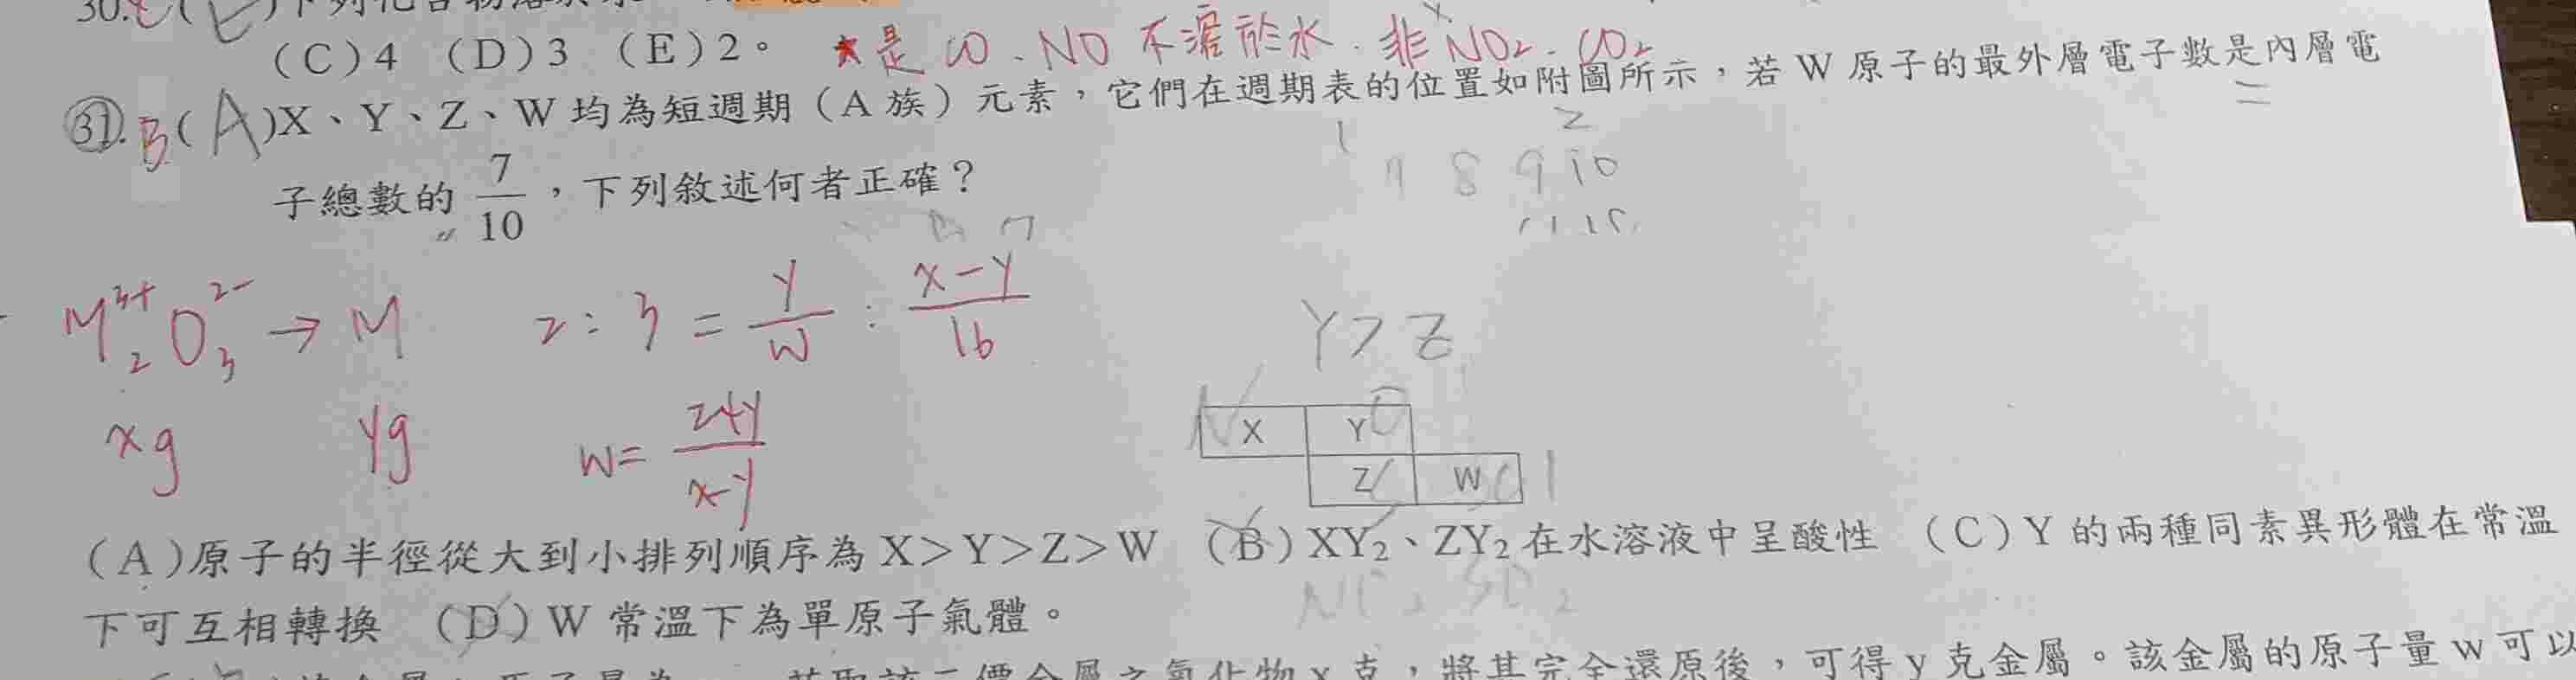 (C)4 (D)3 (E)2。 ★是CO、NO不溶於水.非NO₂.CO₂
③①.B(A)X、Y、Z、W 均為短週期（A 族）元素，它們在週期表的位置如附圖所示，若 W 原子的最外層電子數是內層電
子總數的 7/10，下列敘述何者正確？
1 2
7 8 9 10
M₂³⁺O₃²⁻ → M 2:3 = y/w : (x-y)/16
Y>Z
xg yg w= 24y/(x-y)
N X Y O
Z W Cl
(A)原子的半徑從大到小排列順序為 X>Y>Z>W (B)XY₂、ZY₂ 在水溶液中呈酸性 (C)Y 的兩種同素異形體在常溫
下可互相轉換 (D)W 常溫下為單原子氣體。
NO₂ SO₂
克，將其完全還原後，可得 y 克金屬。該金屬的原子量 w 可以